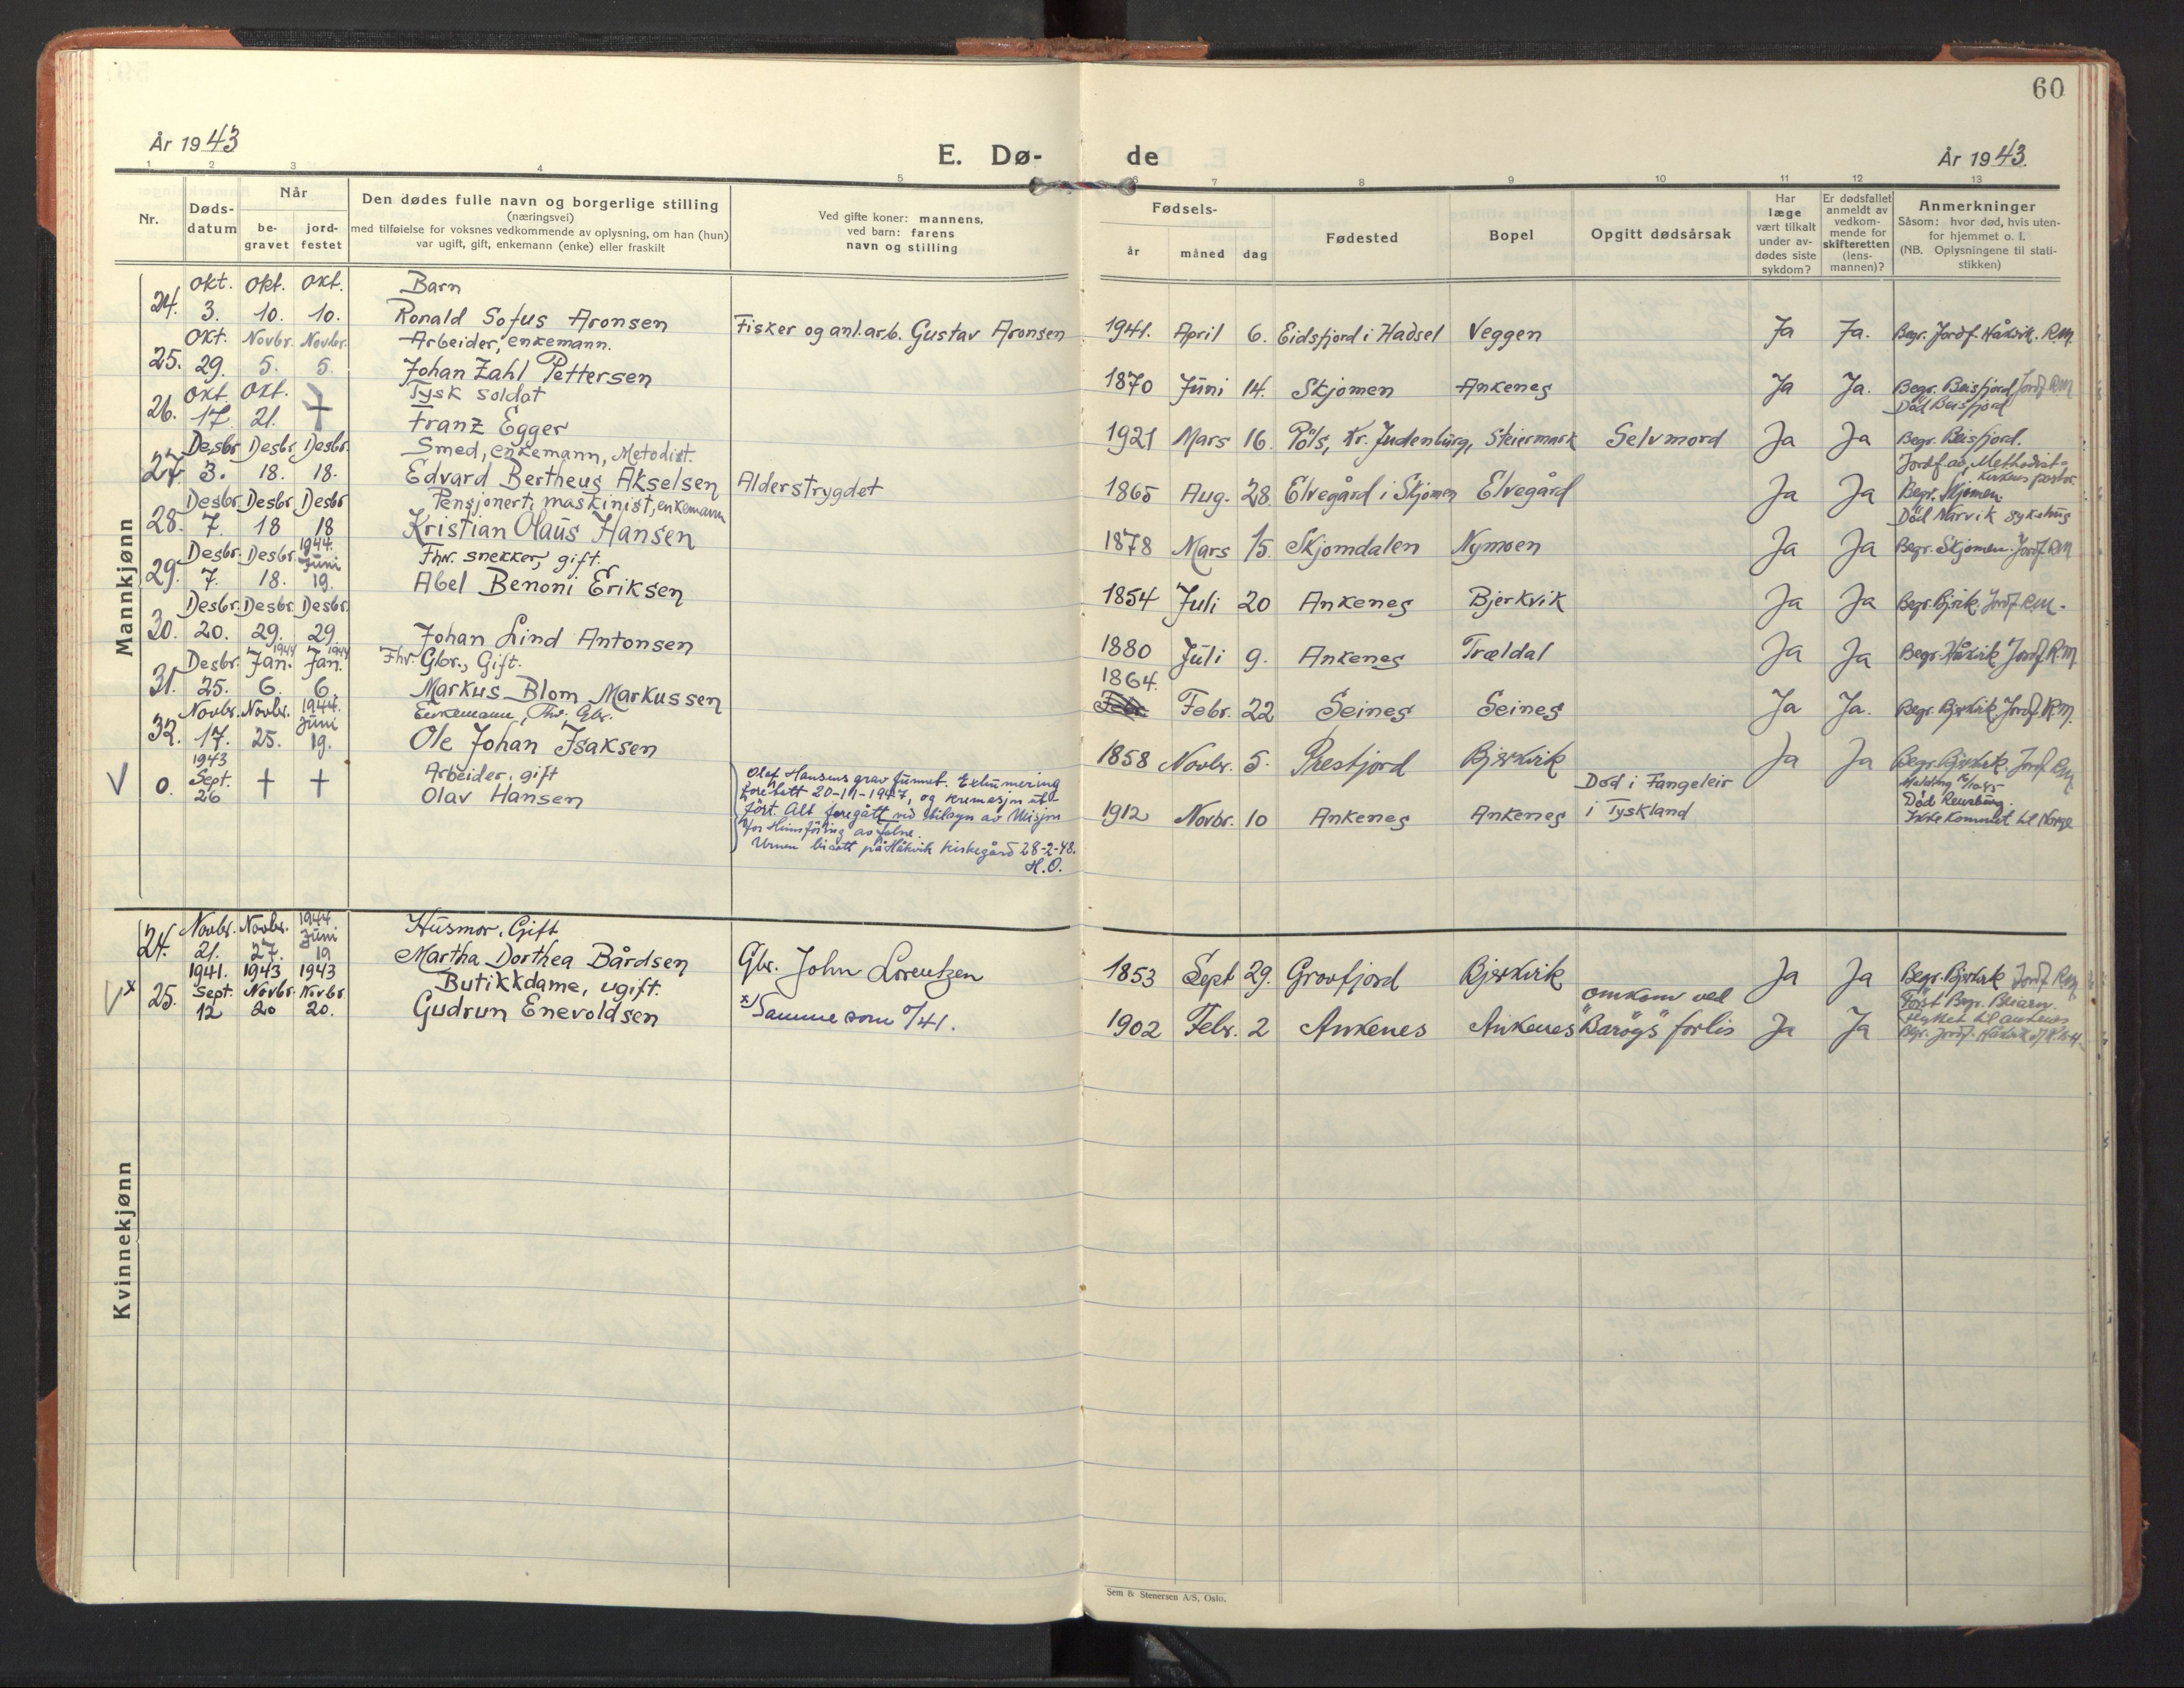 60
År 1943
E. Dø-
de
År 1943.
1 2 3 4 5 6 7 8 9 10 11 12 13
Nr.
Døds-
datum
Når
be-
gravet
jord-
festet
Den dødes fulle navn og borgerlige stilling
(næringsvei)
med tilføielse for voksnes vedkommende av oplysning, om han (hun)
var ugift, gift, enkemann (enke) eller fraskilt
Ved gifte koner: mannens,
ved barn: farens
navn og stilling
Fødsels-
år
måned
dag
Fødested
Bopel
Opgitt dødsårsak
Har
læge
vært tilkalt
under av-
dødes siste
sykdom?
Er dødsfallet
anmeldt av
vedkom-
mende for
skifteretten
(lens-
mannen)?
Anmerkninger
Såsom: hvor død, hvis uten-
for hjemmet o. l.
(NB. Oplysningene til stati-
stikken)
Mannkjønn
Okt. Okt. Okt. Barn
24. 3. 10. 10. Ronald Sofus Aronsen Fisker og anl.arb. Gustav Aronsen 1941. April 6. Eidsfjord i Hadsel Veggen Ja Ja. Begr. Jordf. Håkvik. R.M.
Okt. Novbr. Novbr. Arbeider, enkemann.
25. 29. 5. 5. Johan Zahl Pettersen 1870 Juni 14. Skjomen Ankenes Ja Ja. Begr. Beisfjord Jordf. R.M
Død Beisfjord
Okt. Okt. Tysk soldat
26. 17. 21. † Franz Egger 1921 Mars 16. Pöls, Kr. Judenburg, Steiermark Selvmord Ja Ja Begr. Beisfjord.
Desbr. Desbr. Desbr. Smed, enkemann, Metodist.
Jordf. av Methodist-
kirkens pastor
27. 3. 18. 18. Edvard Bertheus Akselsen Alderstrygdet 1865 Aug. 28. Elvegård i Skjomen Elvegård Ja Ja Begr. Skjomen.
Død Narvik sykehus
Desbr Desbr Desbr Pensjonert maskinist, enkemann
28. 7. 18 18 Kristian Olaus Hansen 1878 Mars 15. Skjomdalen Nymoen Ja Ja Begr. Skjomen. Jordf. R.M
Desbr. Desbr. 1944. Juni Fhv. snekker, gift.
29. 7. 18. 19. Abel Benoni Eriksen 1854 Juli 20 Ankenes Bjerkvik Ja Ja Begr. Bjvik. Jordf. R.M.
Desbr. Desbr. Desbr.
30. 20. 29. 29. Johan Lind Antonsen 1880 Juli 9. Ankenes Trældal Ja Ja Begr. Håkvik Jordf. R.M.
Desbr. Jan. 1944 Jan. 1944 Fhv. Gbr., Gift.
31. 25. 6. 6. Markus Blom Markussen 1864. Febr. 22 Seines Seines Ja Ja. Begr. Bjerkvik Jordf. R.M.
Novbr. Novbr. 1944. Juni Enkemann, Fhv. Gbr.
32. 17. 25. 19. Ole Johan Isaksen 1858 Novbr. 5. Prestjord Bjerkvik Ja Ja Begr. Bjerkvik. Jordf. R.M
V 0. 1943 Sept. 26 † † Arbeider, gift
Olav Hansen
Olaf Hansens grav funnet. Exhumering
foretatt 20-11-1947, og kremasjon ut-
ført. Alt foregått ved tilsyn av Misjon
for Hjemføring av falne.
Urnen bisatt på Håkvik kirkegård 28-2-48.
H.O.
1912 Novbr. 10 Ankenes Ankenes
Død i Fangeleir
i Tyskland
Død Rensburg.
Ikke kommet til Norge
Kvinnekjønn
Novbr. Novbr. 1944 Juni Husmor. Gift
24. 21. 27. 19 Martha Dorthea Bårdsen Gbr. John Lorentzen 1853 Sept 29. Grovfjord Bjerkvik Ja Ja Begr. Bjerkvik Jordf. R.M.
1941. 1943 1943 Butikkdame, ugift.
V x 25. Sept. 12 Novbr. 20 Novbr. 20. Gudrun Enevoldsen x) Samme som 9/41. 1902 Febr. 2 Ankenes Ankenes
Omkom ved
"Barøys" forlis Ja Ja
Først Begr. Beiarn.
Flyttet til Ankenes
Begr. Jordf. Håkvik
Sem & Stenersen A/S, Oslo.